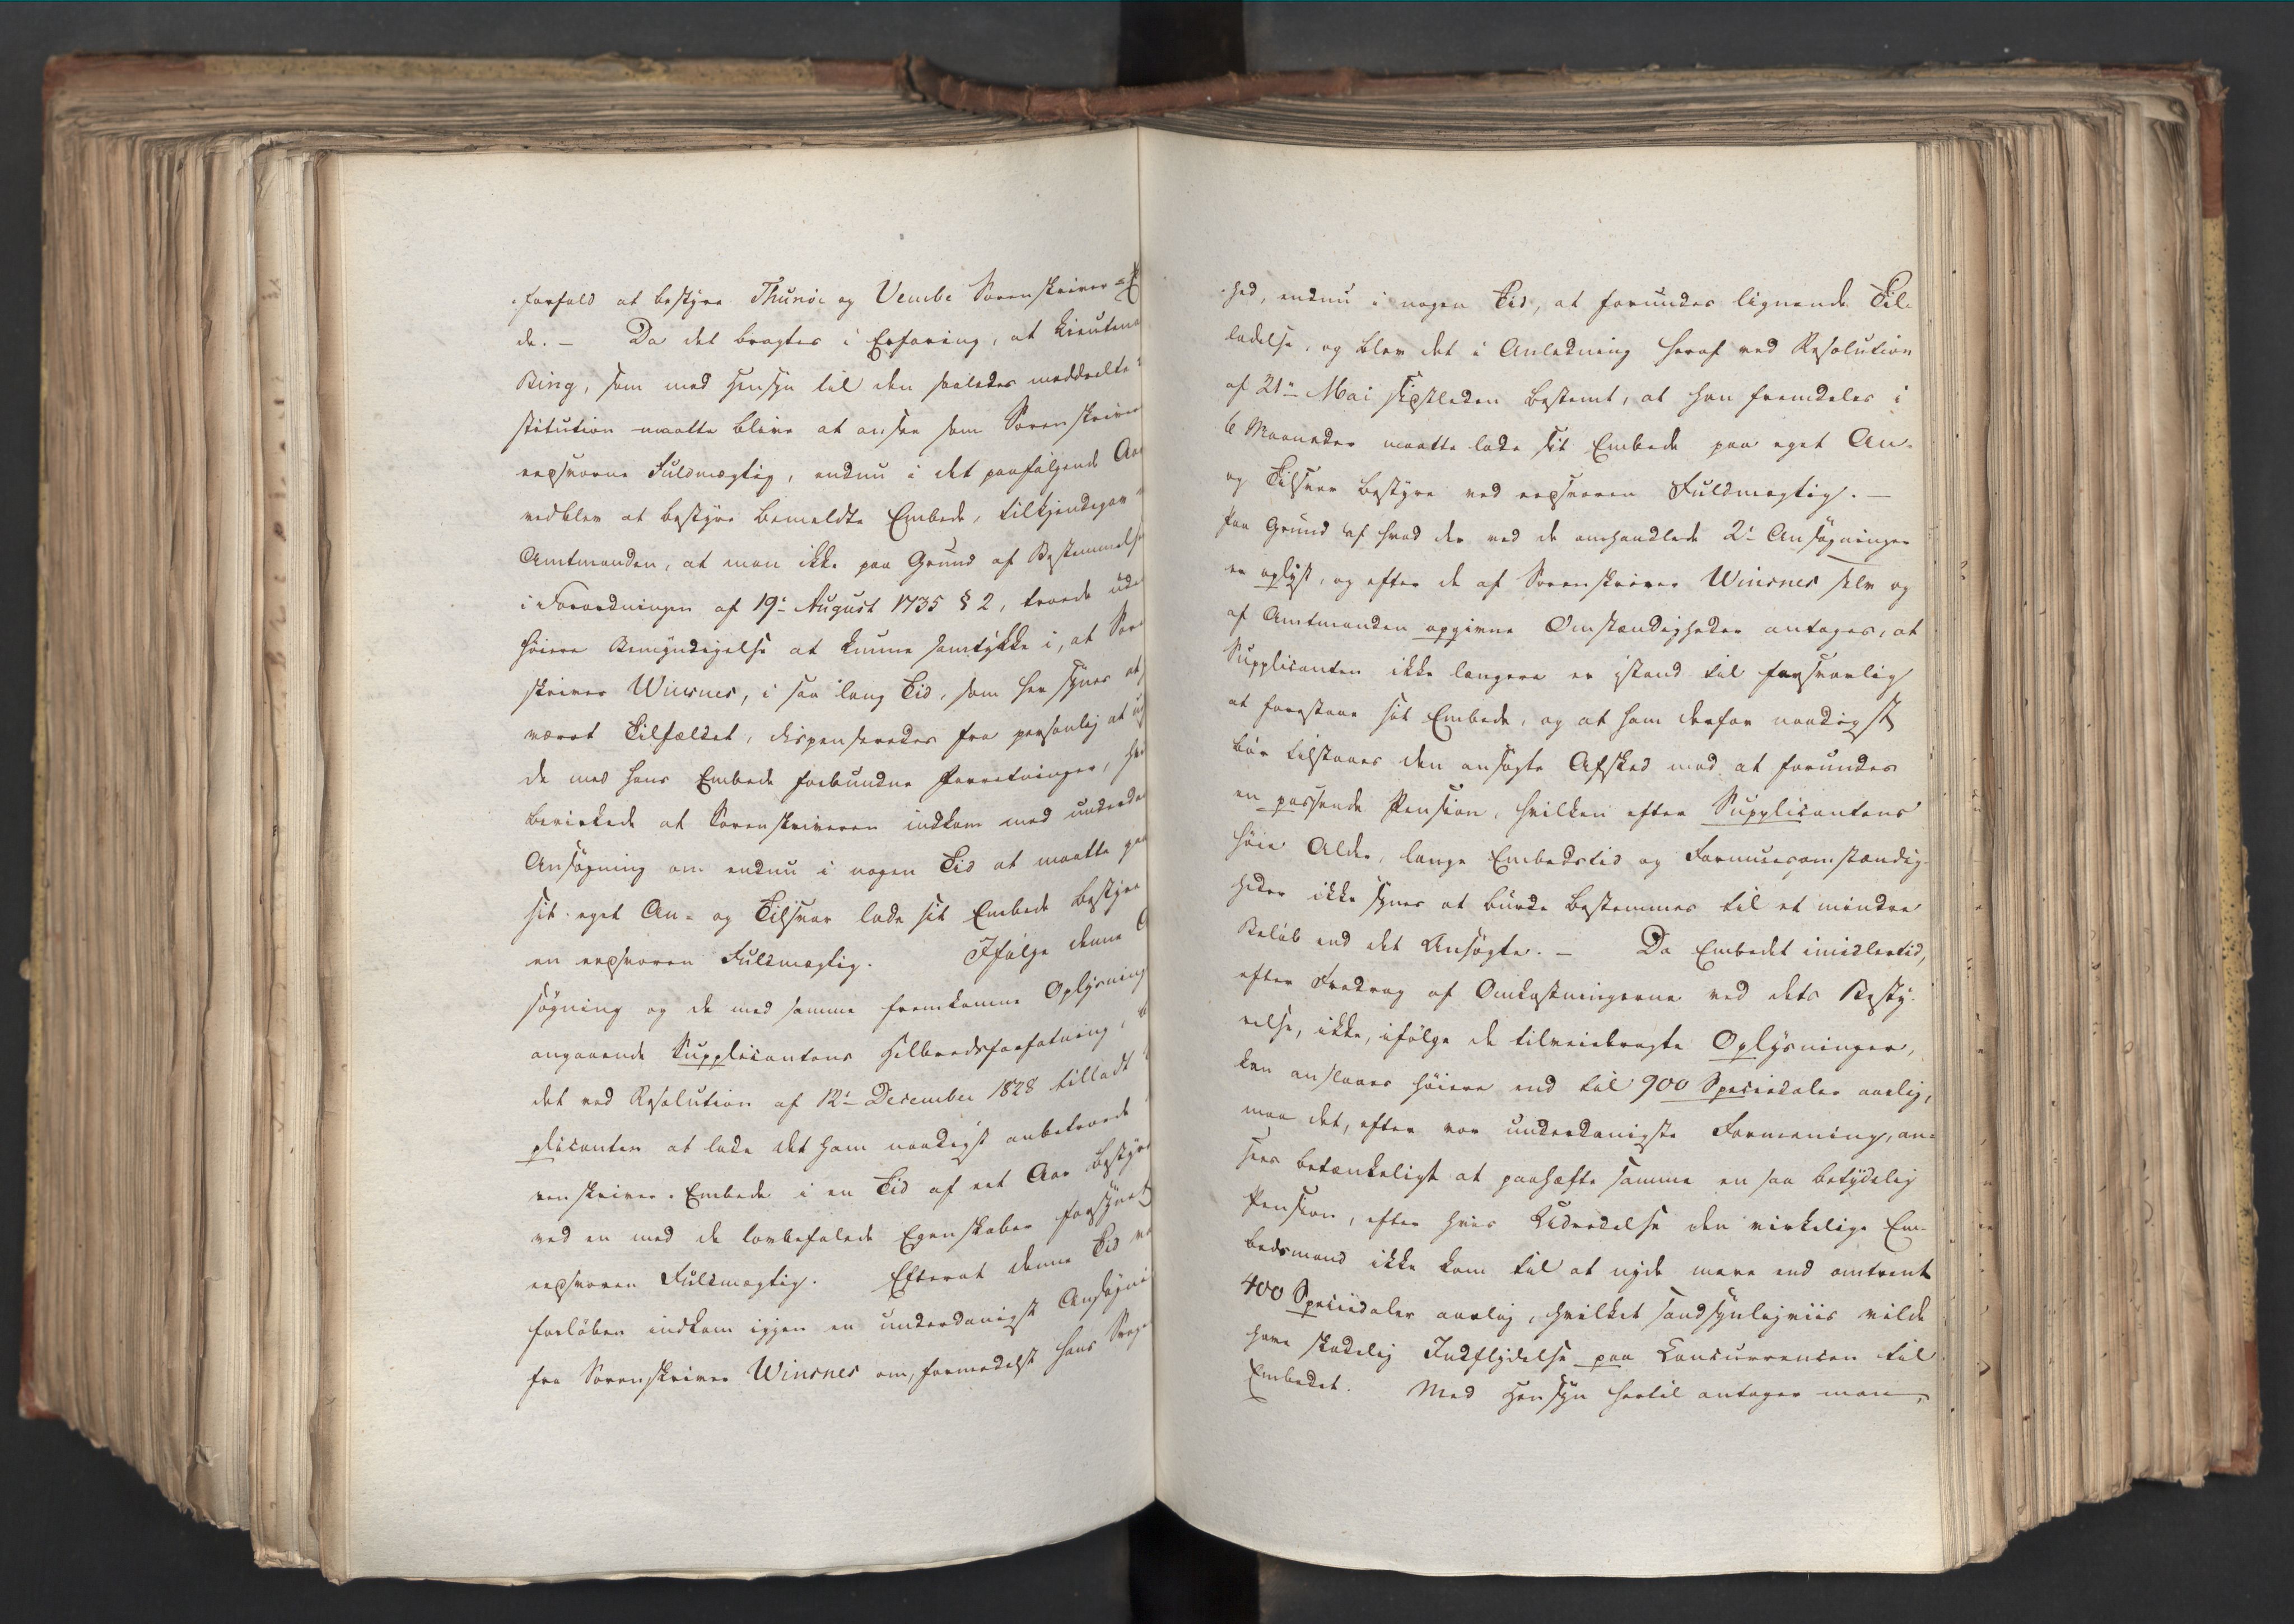 forfald at bestyre Thunøe og Vembe Sorenskriver-E
de. – Da det bragtes i Erfaring, at Lieutena
Bing, som med Hensyn til den saaledes meddeelte
stitution maatte blive at ansee som Sorenskriver
eedsvorne Fuldmægtig, endnu i det paafølgende Aar
vedblev at bestyre bemeldte Embede, tilkjendegav
Amtmanden, at man ikke paa Grund af Bestemmelse
i Forordningen af 19de August 1735 § 2, troede ude
høiere Bemyndigelse at kunne samtykke i, at Sor
skriver Winsnes, i saa lang Tid, som her synes at
været Tilfældet, dispenseredes fra personlig at u
de med hans Embede forbundne Forretninger, hv
bevirkede at Sorenskriveren indkom med underda
Ansøgning om endnu i nogen Tid at maatte paa
sit eget An- og Tilsvar lade sit Embede bestyre
en eedsvoren Fuldmægtig. Ifølge denne A
søgning og de med samme fremkomne Oplysning
angaaende Supplicantens Helbredsforfatning, b
det ved Resolution af 12te December 1828 tilladt
plicanten at lade det ham naadigst anbetroede
renskriver-Embede i en Tid af eet Aar bestyre
ved en med de lovbefalede Egenskaber forsynet
eedsvoren Fuldmægtig. Efterat denne Tid va
forløben indkom igjen en underdanigst Ansøgni
fra Sorenskriver Winsnes om, formedelst hans Svage
hed, endnu i nogen Tid, at forundes lignende Til-
ladelse, og blev det i Anledning heraf ved Resolution
af 21de Mai sidstleden bestemt, at han fremdeles i
6 Maaneder maatte lade sit Embede paa eget An-
og Tilsvar bestyre ved eedsvoren Fuldmægtig. –
Paa Grund af hvad der ved de omhandlede 2de Ansøgninger
er oplyst, og efter de af Sorenskriver Winsnes selv og
af Amtmanden opgivne Omstændigheder antages, at
Supplicanten ikke længere er istand til forsvarlig
at forestaae sit Embede, og at ham derfor naadigst
bør tilstaaes den ansøgte Afsked med at forundes
en passende Pension, hvilken efter Supplicantens
høie Alder, lange Embedstid og Formuesomstændig-
heder ikke synes at burde bestemmes til et mindre
Beløb end det Ansøgte. – Da Embedet imidlertid,
efter Fradrag af Omkostningerne ved dets Besty-
relse, ikke, ifølge de tilveiebragte Oplysninger,
kan anslaaes høiere end til 900 Speciedaler aarlig,
maa det, efter vor underdanigste Formening, an-
sees betænkeligt at paahæfte samme en saa betydelig
Pension, efter hvis Udredelse den virkelige Em-
bedsmand ikke kom til at nyde mere end omtrent
400 Speciedaler aarlig, hvilket sandsynligviis vilde
have skadelig Indflydelse paa Concurrencen til
Embedet. Med Hensyn hertil antager man,